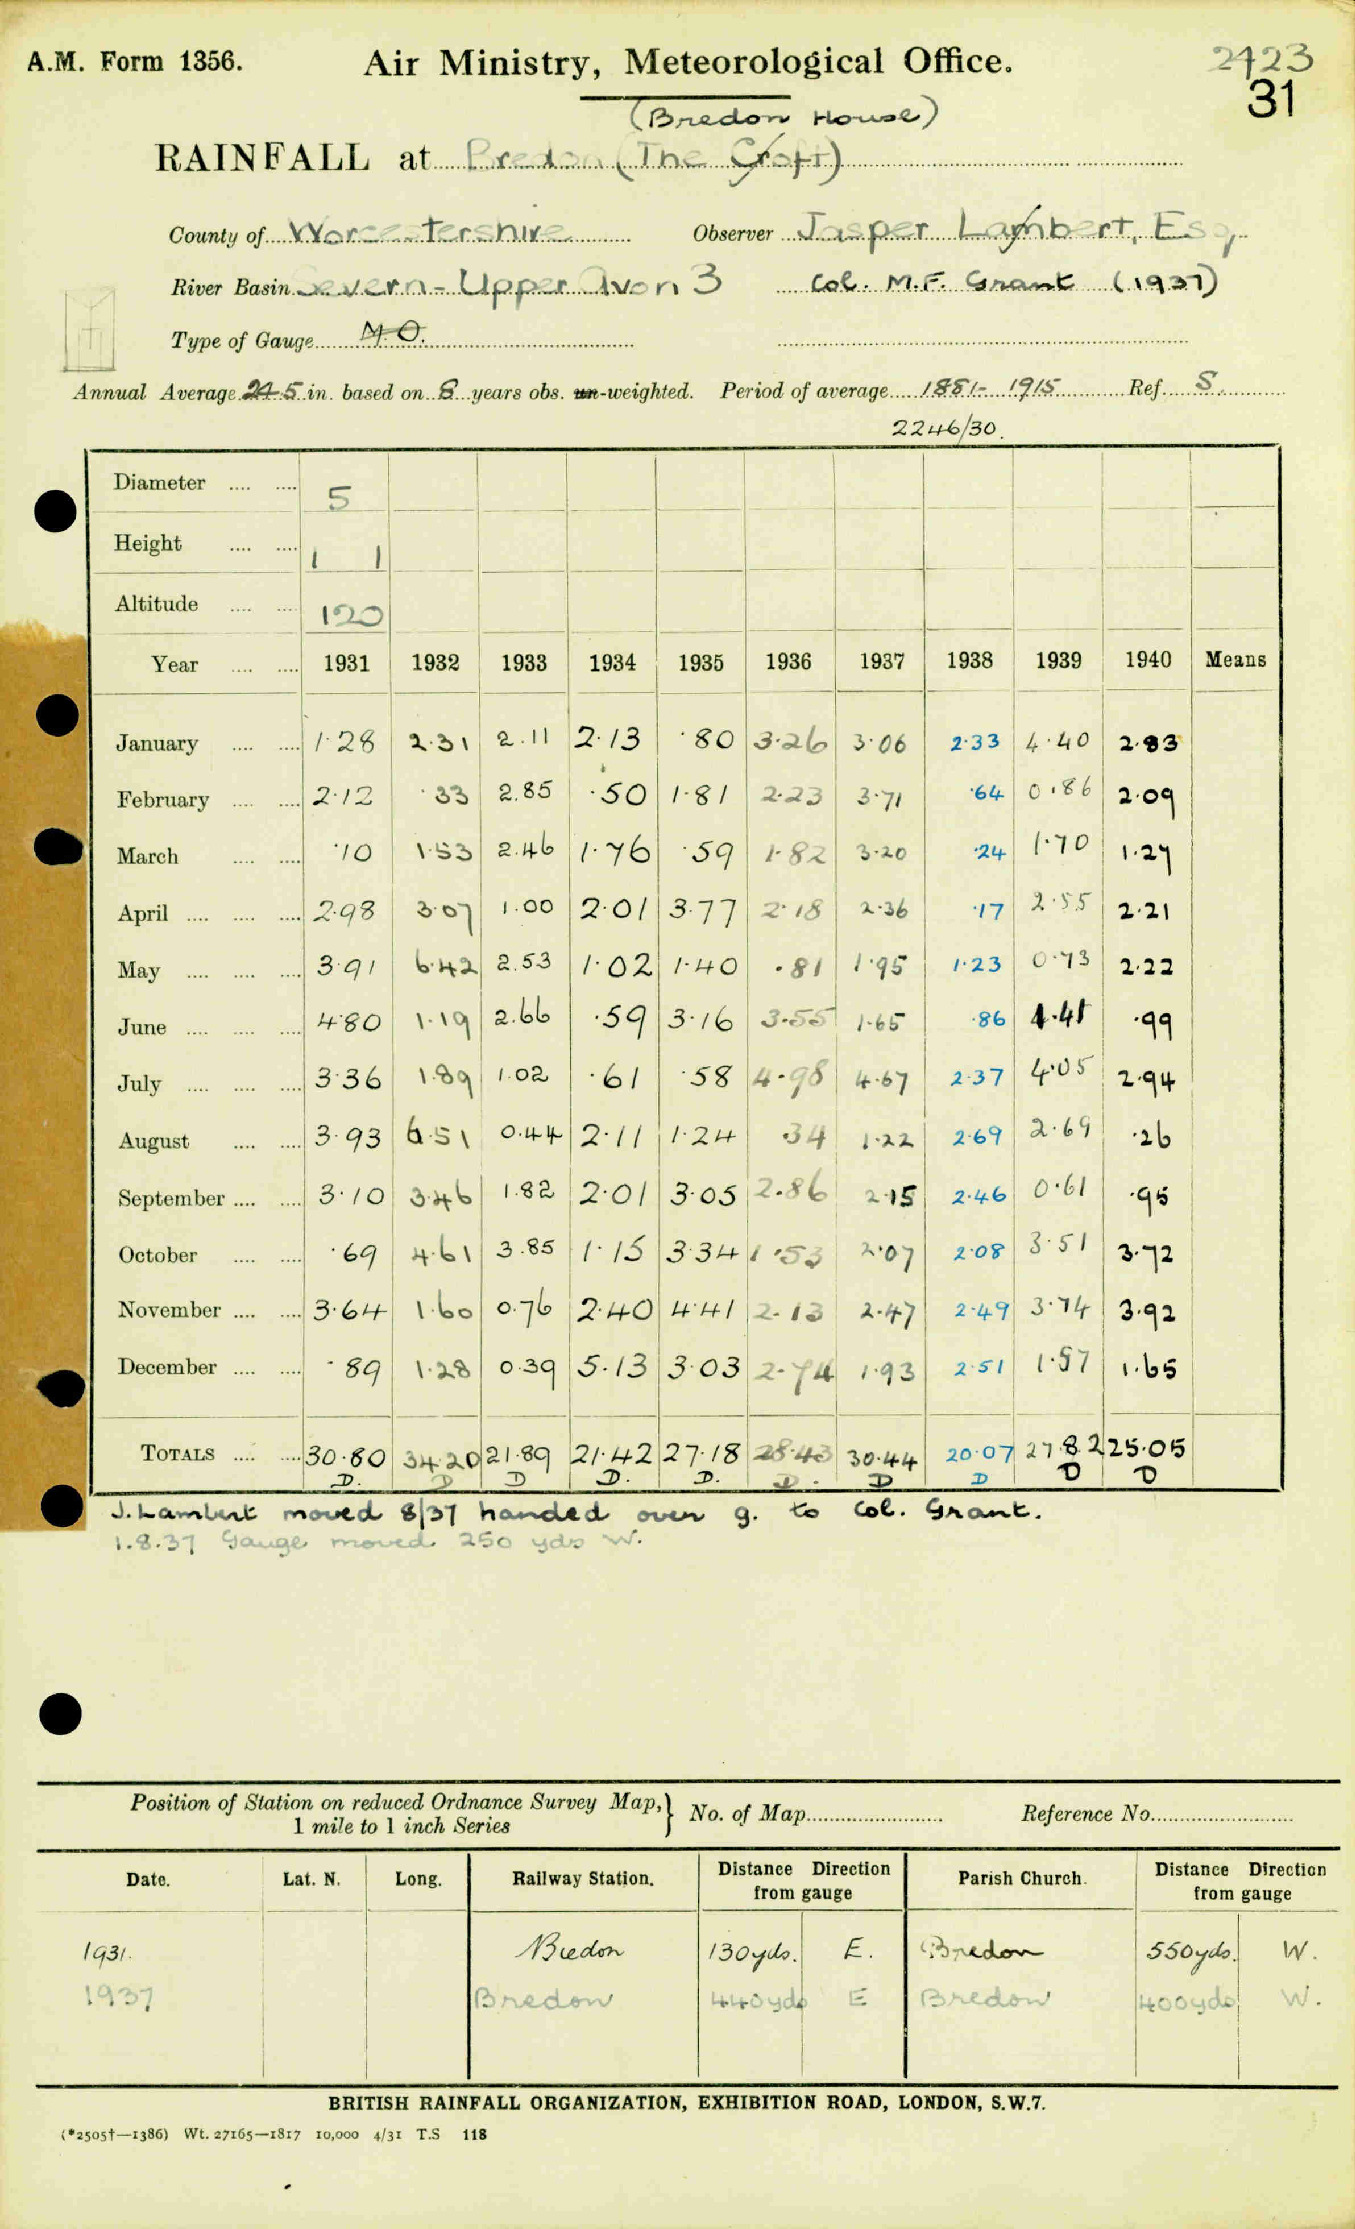 A.M. Form 1356. Air Ministry, Meteorological Office. 2423
31
(Bredon House)
RAINFALL at Bredon (The Croft)
County of Worcestershire Observer Jasper Lambert, Esq.
River Basin Severn - Upper Avon 3 Col. M.F. Grant (1937)
Type of Gauge M.O.
Annual Average 24.5 in. based on 8 years obs. un-weighted. Period of average 1881-1915 Ref. S.
2246/30.
Diameter 5
Height 1 1
Altitude 120
Year 1931 1932 1933 1934 1935 1936 1937 1938 1939 1940 Means
January 1.28 2.31 2.11 2.13 .80 3.26 3.06 2.33 4.40 2.83
February 2.12 .33 2.85 .50 1.81 2.23 3.71 .64 0.86 2.09
March .10 1.53 2.46 1.76 .59 1.82 3.20 .24 1.70 1.27
April 2.98 3.07 1.00 2.01 3.77 2.18 2.36 .17 2.55 2.21
May 3.91 6.42 2.53 1.02 1.40 .81 1.95 1.23 0.73 2.22
June 4.80 1.19 2.66 .59 3.16 3.55 1.65 .86 1.41 .99
July 3.36 1.89 1.02 .61 .58 4.98 4.67 2.37 4.05 2.94
August 3.93 6.51 0.44 2.11 1.24 .34 1.22 2.69 2.69 .26
September 3.10 3.46 1.82 2.01 3.05 2.86 2.15 2.46 0.61 .95
October .69 4.61 3.85 1.15 3.34 1.53 2.07 2.08 3.51 3.72
November 3.64 1.60 0.76 2.40 4.41 2.13 2.47 2.49 3.74 3.92
December .89 1.28 0.39 5.13 3.03 2.74 1.93 2.51 1.57 1.65
TOTALS 30.80 34.20 21.89 21.42 27.18 28.43 30.44 20.07 27.82 25.05
D. D D D. D. D. D D D D
J. Lambert moved 8/37 handed over g. to Col. Grant.
1.8.37 Gauge moved 250 yds W.
Position of Station on reduced Ordnance Survey Map,} No. of Map Reference No.
1 mile to 1 inch Series
Date. Lat. N. Long. Railway Station. Distance Direction from gauge Parish Church. Distance Direction from gauge
1931. Bredon 130yds. E. Bredon 550yds. W.
1937 Bredon 440yds E Bredon 400yds W.
BRITISH RAINFALL ORGANIZATION, EXHIBITION ROAD, LONDON, S.W.7.
(*2505†—1386) Wt. 27165—1817 10,000 4/31 T.S 118